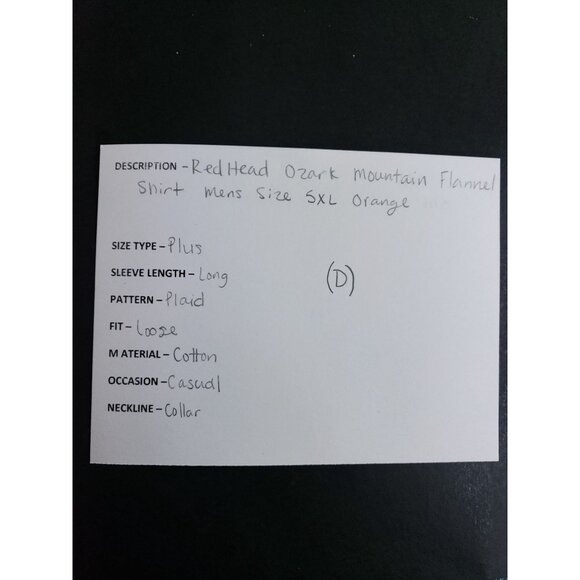 DESCRIPTION - RedHead Ozark Mountain Flannel
Shirt Mens Size 5XL Orange
SIZE TYPE - Plus
SLEEVE LENGTH - Long
(D)
PATTERN - Plaid
FIT - Loose
MATERIAL - Cotton
OCCASION - Casual
NECKLINE - Collar